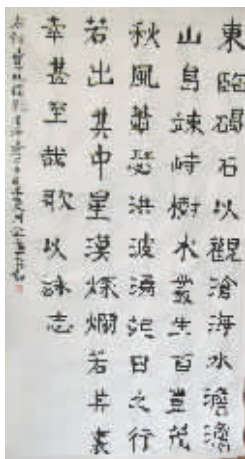 東臨碣石以觀滄海水澹澹
山島竦峙樹木叢生百豊茂
秋風蕭瑟洪波湧起日之行
若出其中星漢燦爛若其裏
幸甚至哉歌以詠志